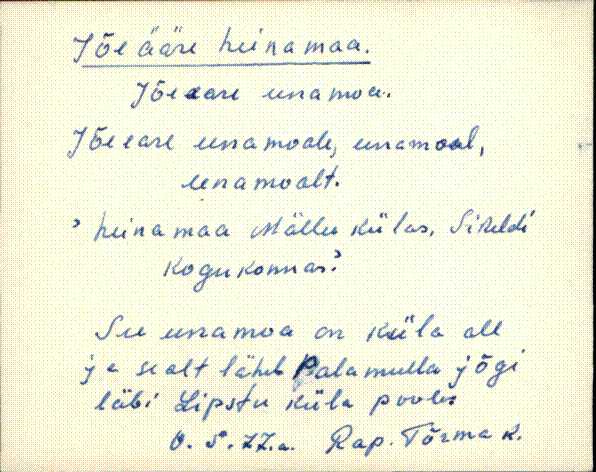 Jõe ääre heinamaa.
Jõeeare einamoa.
Jõeeare einamoale, einamoal,
einamoalt.
' heinamaa Mällu külas, Sikeldi
kogukonnas.'
See einamoa on küla all
ja sealt läheb Palamulla jõgi
läbi Lipstu küla poole.
O. S. 77.a. Rap. Tõrma k.